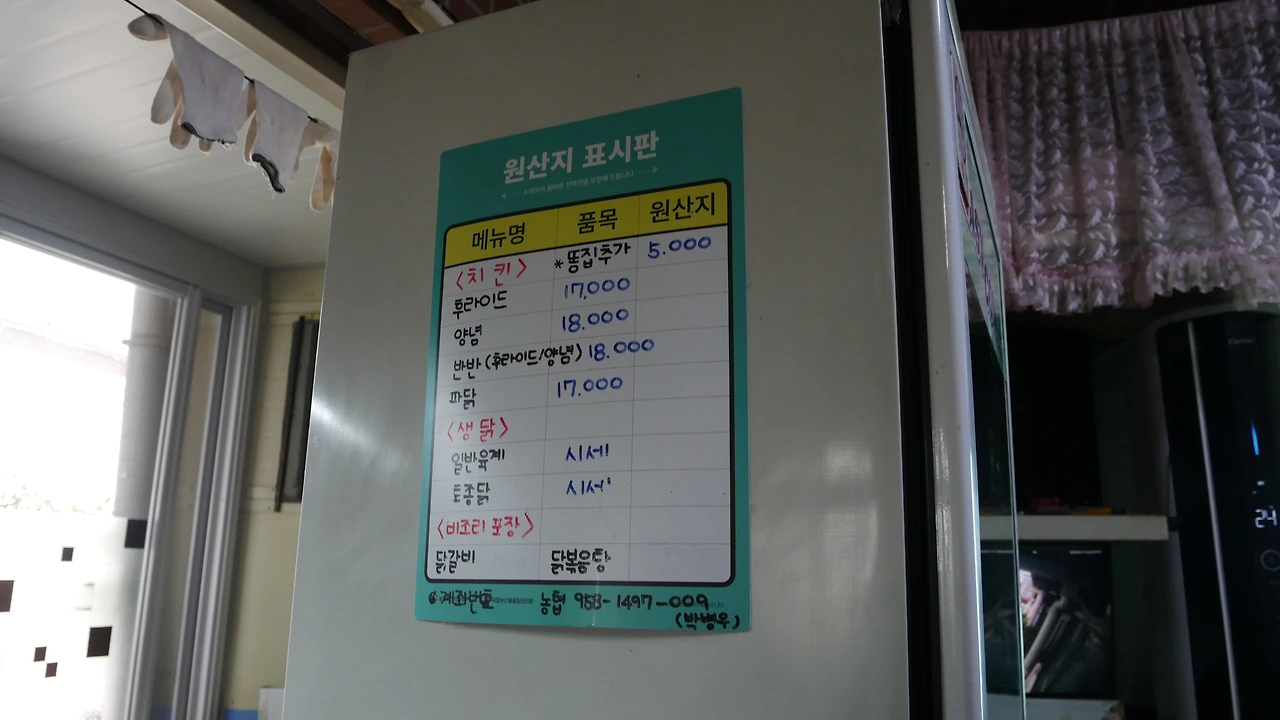 원산지 표시판
소비자의 올바른 선택권을 보장해 드립니다
메뉴명 품목 원산지
<치킨> *똥집추가 5.000
후라이드 17,000
양념 18.000
반반 (후라이드/양념) 18.000
파닭 17.000
<생닭>
일반육계 시세
토종닭 시세
<비조리 포장>
닭갈비 닭볶음탕
계좌번호 농협 958-1497-009
(박병우)
24